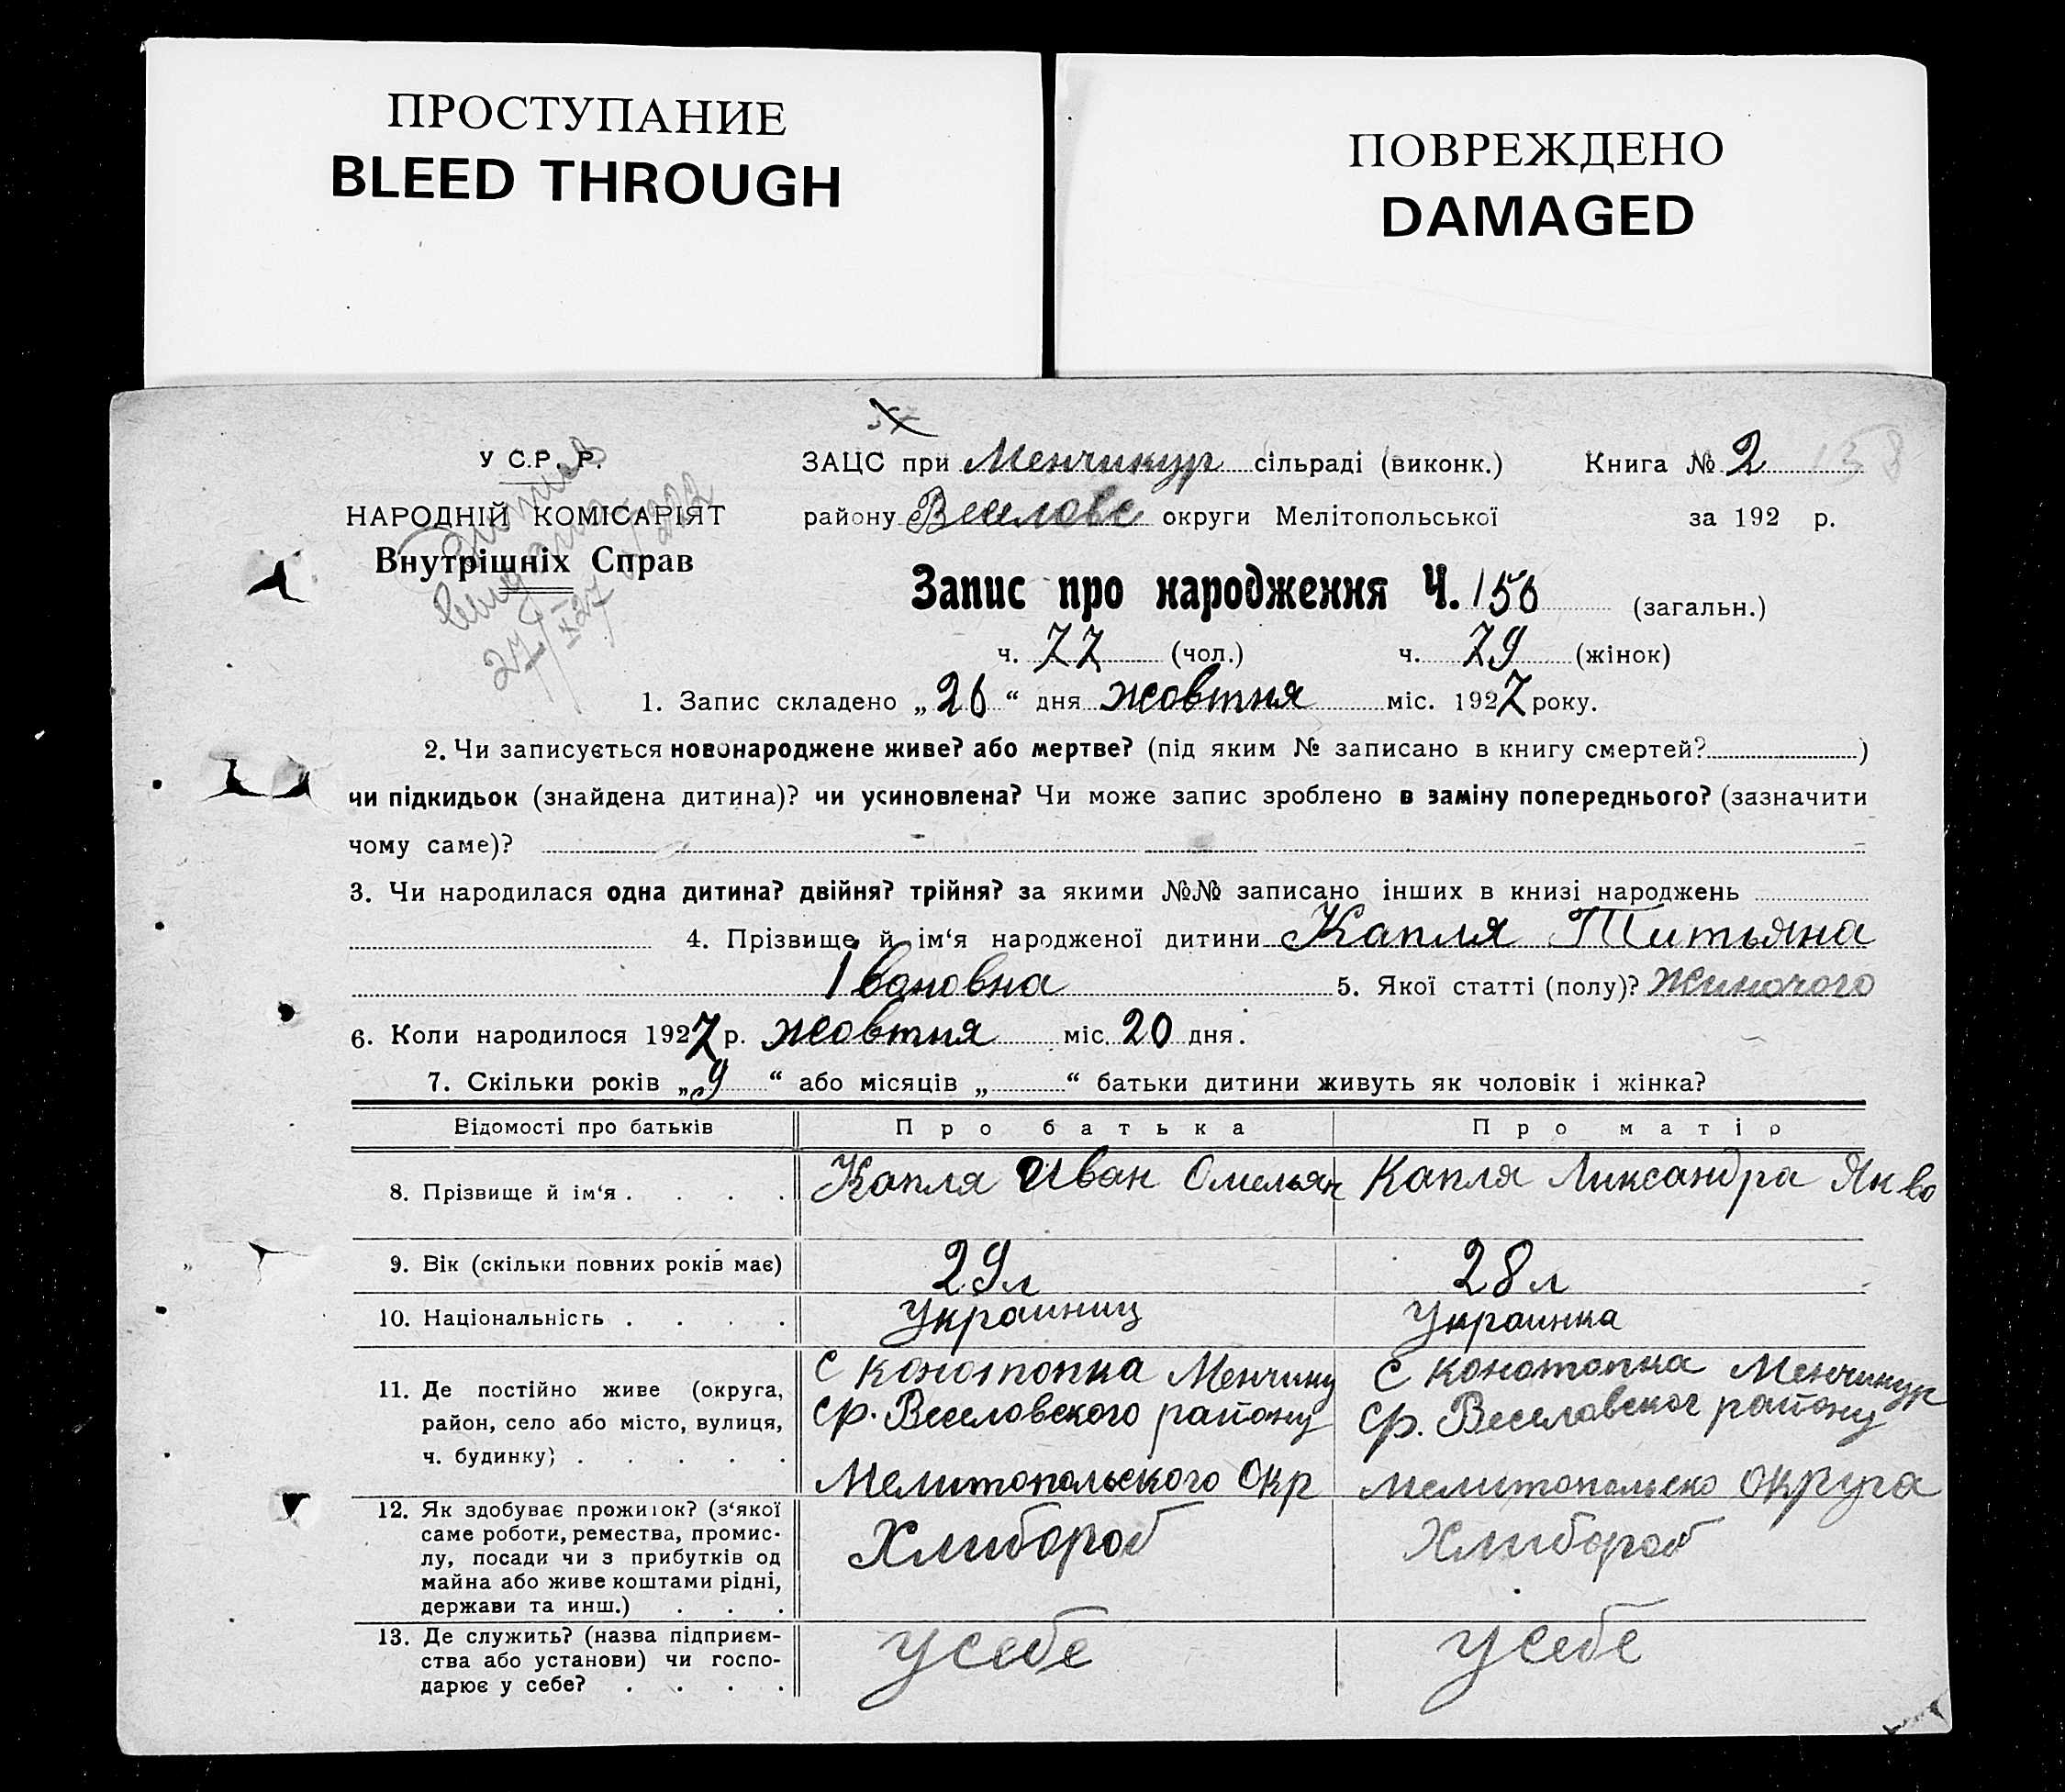 ПРОСТУПАНИЕ
BLEED THROUGH
ПОВРЕЖДЕНО
DAMAGED
У С.Р. Р.
НАРОДНІЙ КОМІСАРІЯТ
Внутрішніх Справ
27/X 27
ЗАЦС при Менчикур сільраді (виконк.) Книга № 2 138
району Веселовс округи Мелітопольської за 192 р.
Запис про народження Ч. 156 (загальн.)
ч. 77 (чол.) ч. 79 (жінок)
1. Запис складено „26“ дня жовтня міс. 1927 року.
2. Чи записується новонароджене живе? або мертве? (під яким № записано в книгу смертей? )
чи підкидьок (знайдена дитина)? чи усиновлена? Чи може запис зроблено в заміну попереднього? (зазначити
чому саме)?
3. Чи народилася одна дитина? двійня? трійня? за якими №№ записано інших в книзі народжень
4. Прізвище й ім‘я народженої дитини Капля Титьяна
Івановна 5. Якої статті (полу)? Жиночого
6. Коли народилося 1927 р. жовтня міс. 20 дня.
7. Скільки років „9“ або місяців „ “ батьки дитини живуть як чоловік і жінка?
Відомості про батьків Про батька Про матір
8. Прізвище й ім‘я . . . . Капля Иван Омельян Капля Ликсандра Якво
9. Вік (скільки повних років має) 29 л 28 л
10. Національність . . . . Украиниц Украинка
11. Де постійно живе (округа, С Конотопка Менчику С Конотопка Менчикур
район, село або місто, вулиця, ср. Веселовского району ср. Веселавског району
ч. будинку) . . . . . Мелитопольского Окр Мелитопольско Округа
12. Як здобуває прожиток? (з‘якої
саме роботи, ремества, промис-
лу, посади чи з прибутків од Хлибороб Хлибороб
майна або живе коштами рідні,
держави та инш.) . . .
13. Де служить? (назва підприєм-
ства або установи) чи госпо- У себе У себе
дарює у себе? . . . .